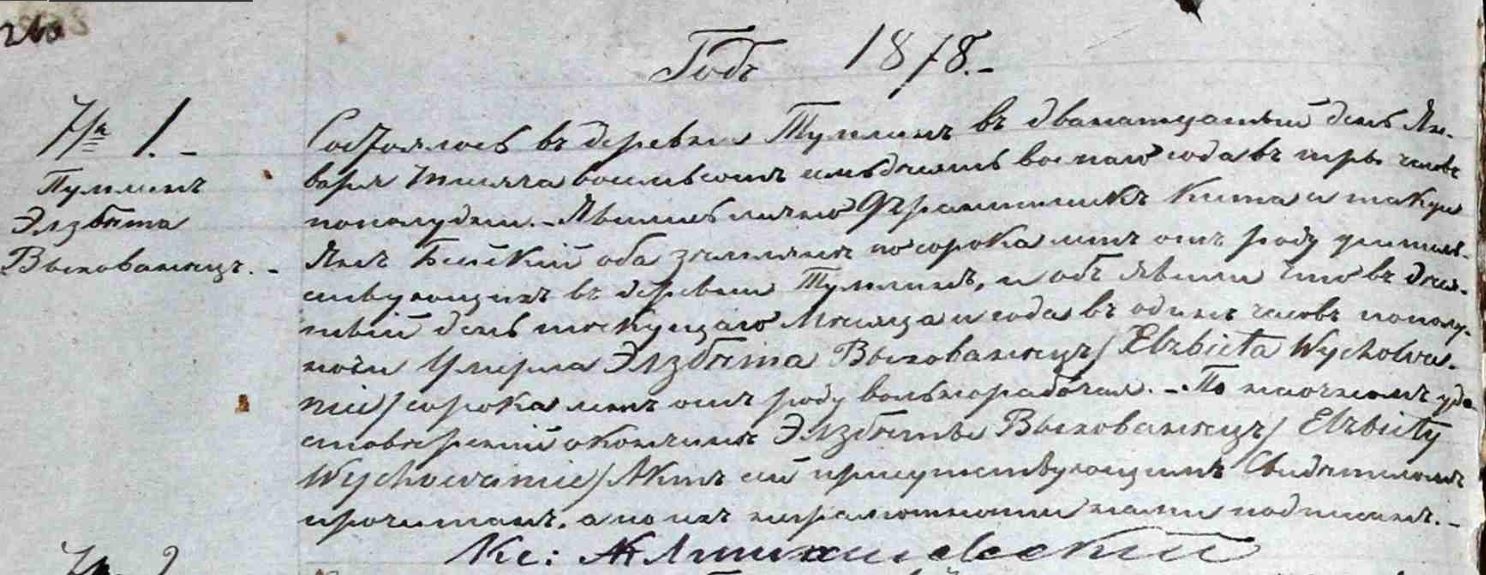 Годъ 1878.-
№ 1.-
Тумлинъ
Элзбѣта
Выхованецъ.-
Состоялось въ деревни Тумлинъ въ дванатцатый день Ян-
варя тысяча восемьсотъ семьдесятъ восмаго года въ три часовъ
пополудни.- Явились лично Францишекъ Кита и такуи
Янъ Бейскій оба земляне по сорока летъ отъ роду житель-
ствующихъ въ деревни Тумлинъ, и объявили что въ деся-
тый день текущаго Месяца и года въ одинъ часовъ пополу-
ночи Умерла Элзбѣта Выхованецъ/ Elzbieta Wychowa-
nie/ сорока летъ отъ роду вольнорабочая.- По наочномъ удо-
стоверений окончинѣ Элзбѣты Выхованецъ/ Elzbiety
Wychowanie/ Актъ сей присутствующимъ Свидѣтелямъ
прочитанъ, а по ихъ неграмотности нами подписанъ.-
Кс:
№ 2